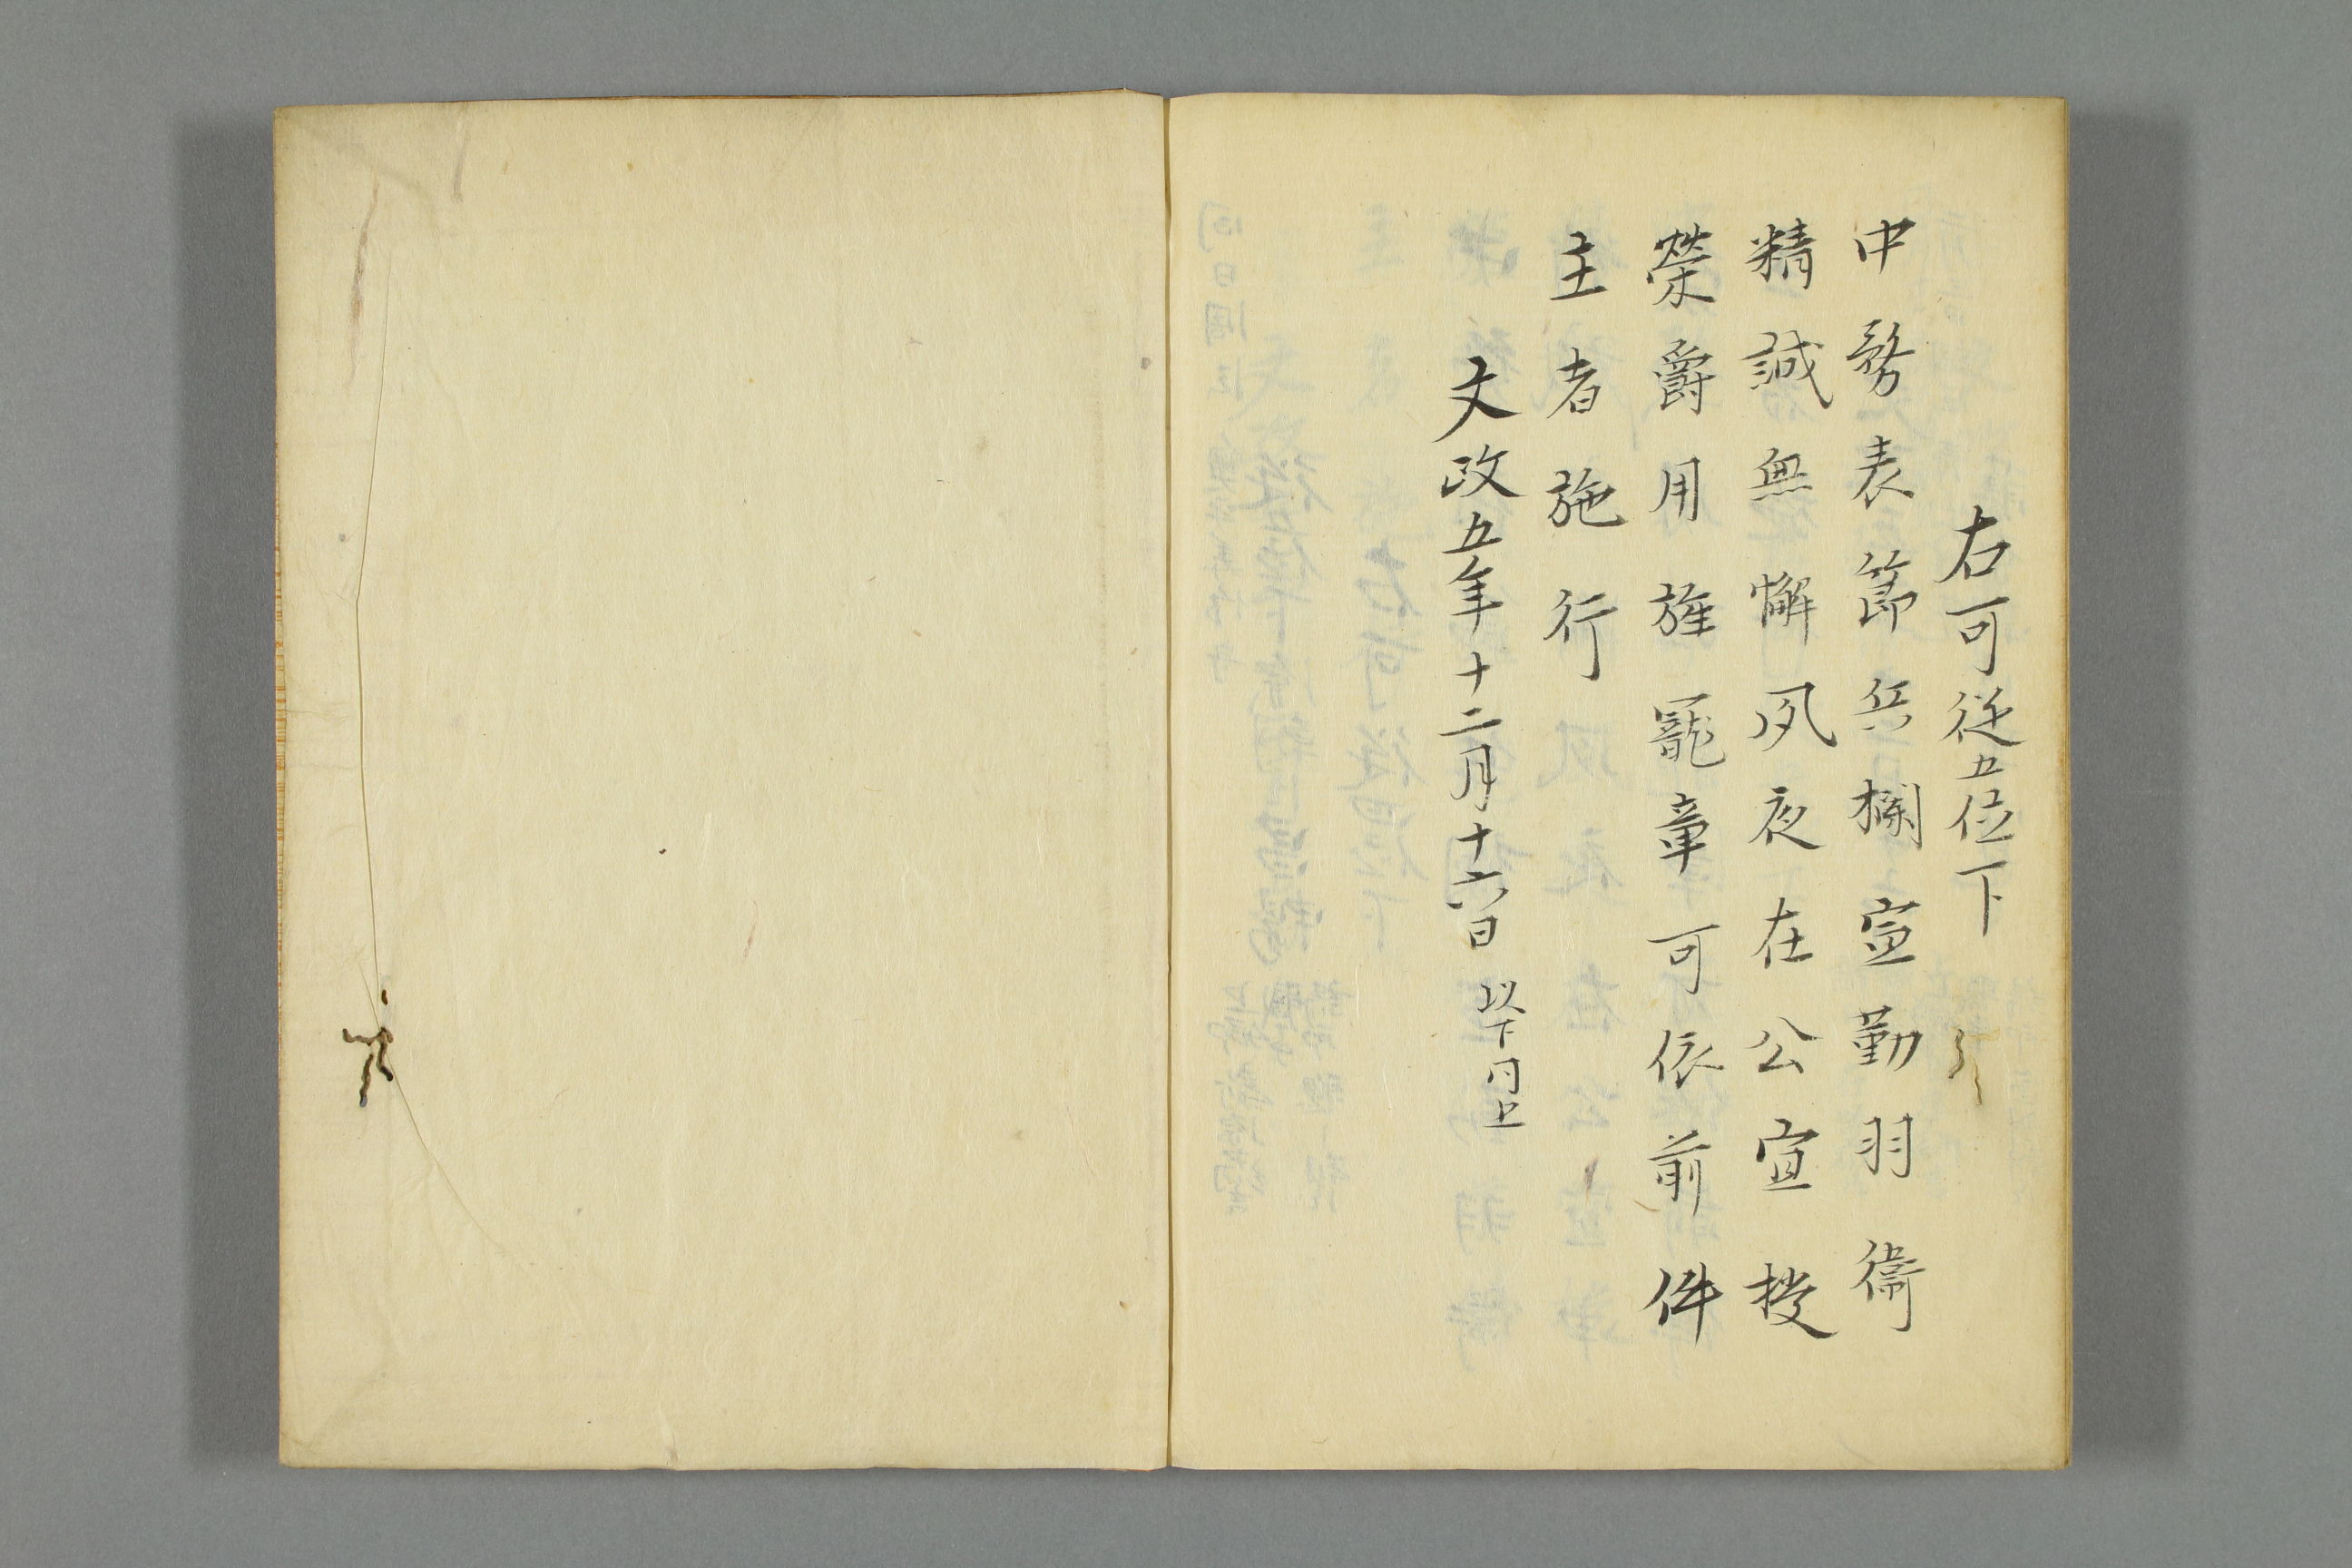 右可従五位下
中務表節兵欄宣勤羽衛
精誠無懈夙夜在公宜授
榮爵用旌寵章可依前件
主者施行
文政五年十二月十六日 以下同上